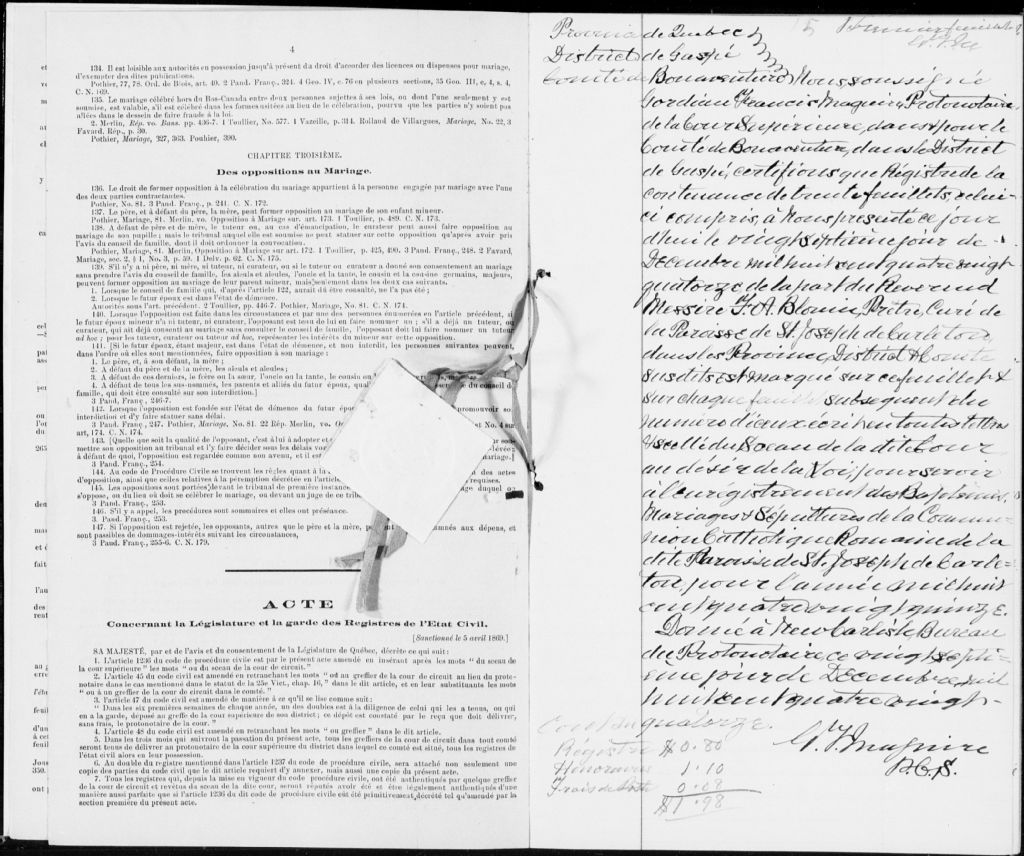 4
134. Il est loisible aux autorités en possession jusqu'à présent du droit d'accorder des licences ou dispenses pour mariage,
d'exempter des dites publications.
Pothier, 77, 78. Ord. de Blois, art. 40. 2 Pand. Franç., 324. 4 Geo. IV, c. 76 en plusieurs sections, 35 Geo. III, c. 4, s. 4,
C. N. 169.
135. Le mariage célébré hors du Bas-Canada entre deux personnes sujettes à ses lois, ou dont l'une seulement y est
soumise, est valable, s'il est célébré dans les formes usitées au lieu de la célébration, pourvu que les parties n'y soient pas
allées dans le dessein de faire fraude à la loi.
2. Merlin, Rép. vo. Bans. pp. 436-7. 1 Toullier, No. 577. 1 Vazeille, p. 314. Rolland de Villargues, Mariage, No. 22, 3
Favard. Rép., p. 30.
Pothier, Mariage, 227, 363. Pothier, 390.
CHAPITRE TROISIÈME.
Des oppositions au Mariage.
136. Le droit de former opposition à la célébration du mariage appartient à la personne engagée par mariage avec l'une
des deux parties contractantes.
Pothier, No. 81. 3 Pand. Franç., p. 241. C. N. 172.
137. Le père, et à défaut du père, la mère, peut former opposition au mariage de son enfant mineur.
Pothier, Mariage, 81. Merlin, vo. Opposition à Mariage sur. art. 173. 1 Toullier, p. 489. C. N. 173.
138. A défaut de père et de mère, le tuteur ou, au cas d'émancipation, le curateur peut aussi faire opposition au
mariage de son pupille ; mais le tribunal auquel elle est soumise ne peut statuer sur cette opposition qu'après avoir pris
l'avis du conseil de famille, dont il doit ordonner la convocation.
Pothier, Mariage, 81. Merlin, Opposition à Mariage sur art. 172. 1 Toullier, p. 425, 490. 3 Pand. Franç., 248. 2 Favard,
Mariage, sec. 2, § 1, No. 3, p. 59. 1 Delv. p. 62. C. N. 175.
139. S'il n'y a ni père, ni mère, ni tuteur, ni curateur, ou si le tuteur ou curateur a donné son consentement au mariage
sans prendre l'avis du conseil de famille, les aïeuls et aïeules, l'oncle et la tante, le cousin et la cousine germains, majeurs,
peuvent former opposition au mariage de leur parent mineur, mais seulement dans les deux cas suivants.
1. Lorsque le conseil de famille qui, d'après l'article 122, aurait dû être consulté, ne l'a pas été ;
2. Lorsque le futur époux est dans l'état de démence.
Autorités sous l'art. précédent. 2 Toullier, pp. 446-7. Pothier, Mariage, No. 81. C. N. 174.
140. Lorsque l'opposition est faite dans les circonstances et par une des personnes énumérées en l'article précédent, si
le futur époux mineur n'a ni tuteur, ni curateur, l'opposant est tenu de lui en faire nommer un ; s'il a déjà un tuteur, ou
curateur, qui ait déjà consenti au mariage sans consulter le conseil de famille, l'opposant doit lui faire nommer un tuteur
ad hoc ; pour les tuteur, curateur ou tuteur ad hoc, représenter les intérêts du mineur sur cette opposition.
141. [Si le futur époux, étant majeur, est dans l'état de démence, et non interdit, les personnes suivantes peuvent,
dans l'ordre où elles sont mentionnées, faire opposition à son mariage :
1. Le père, et, à son défaut, la mère ;
2. A défaut du père et de la mère, les aïeuls et aïeules ;
3. A défaut de ces derniers, le frère ou la sœur, l'oncle ou la tante, le cousin ou
4. A défaut de tous les sus-nommés, les parents et alliés du futur époux, qual du conseil d
famille, qui doit être consulté sur son interdiction.]
3 Pand. Franç., 246-7.
142. Lorsque l'opposition est fondée sur l'état de démence du futur épou promouvoir so
interdiction et d'y faire statuer sans délai.
3 Pand. Franç., 247. Pothier, Mariage, No. 81. 22 Rép. Merlin, vo. O et No. 4 sur
art. 174. C. N. 174.
143. [Quelle que soit la qualité de l'opposant, c'est à lui à adopter et
mettre son opposition au tribunal et l'y faire décider sous les délais vou
défaut de quoi, l'opposition est regardée comme non avenue, et il est mariage.]
3 Pand. Franç., 254.
144. Au code de Procédure Civile se trouvent les règles quant à la des actes
d'opposition, ainsi que celles relatives à la péremption décrétée en l'article requises.
145. Les oppositions sont portées devant le tribunal de première ins duquel on
s'oppose, ou du lieu où doit se célébrer le mariage, ou devant un juge de ce trib
3 Pand. Franç., 253.
146. S'il y a appel, les procédures sont sommaires et elles ont préséance.
3 Pand. Franç., 253.
147. Si l'opposition est rejetée, les opposants, autres que le père et la mère, p mnés aux dépens, et
sont passibles de dommages-intérêts suivant les circonstances,
3 Pand. Franç., 255-6. C. N. 179.
ACTE
Concernant la Législature et la garde des Registres de l'Etat Civil.
[Sanctionné le 5 avril 1869.]
SA MAJESTÉ, par et de l'avis et du consentement de la Législature de Québec, décrète ce qui suit :
1. L'article 1236 du code de procédure civile est par le présente acte amendé en insérant après les mots " du sceau de
la cour supérieure " les mots " ou du sceau de la cour de circuit."
2. L'article 45 du code civil est amendé en retranchant les mots " ou au greffier de la cour de circuit au lieu du proto-
notaire dans le cas mentionné dans le statut de la 25e Vict., chap. 16," dans le dit article, et en leur substituants les mots
" ou à un greffier de la cour de circuit dans le comté."
3. l'article 47 du code civil est amendé de manière à ce qu'il se lise comme suit :
" Dans les six premières semaines de chaque année, un des doubles est à la diligence de celui qui les a tenus, ou qui
en a la garde, déposé au greffe de la cour supérieure de son district ; ce dépôt est constaté par le reçu que doit délivrer,
sans frais, le protonotaire de la cour."
4. L'article 48 du code civil est amendé en retranchant les mots " ou greffier " dans le dit article.
5. Dans les trois mois qui suivront la passation du présent acte, tous les greffiers de la cour de circuit dans tout comté
seront tenus de délivrer au protonotaire de la cour supérieure du district dans lequel ce comté est situé, tous les registres de
l'état civil alors en leur possession.
6. Au double du registre mentionné dans l'article 1237 du code de procédure civile, sera attaché non seulement une
copie des parties du code civil que le dit article requiert d'y annexer, mais aussi une copie du présent acte.
7. Tous les registres qui, depuis la mise en vigueur du code procédure civile, ont été authentiqués par quelque greffier
de la cour de circuit et revêtus du sceau de la dite cour, seront réputés avoir été et être légalement authentiqués d'une
manière aussi parfaite que si l'article 1236 du dit code de procédure civile eût été primitivement décrété tel qu'amendé par la
section première du présent acte.
Province de Quebec
District de Gaspé
Comté de Bonaventure Nous soussigné
Gordien Francis Maguire, Protonotaire
de la Cour Supérieure, dans & pour le
Comté de Bonaventure, dans le District
de Gaspé, certifions que Régistre de la
contenance de trente feuillets, celui-
ci compris, à Nous presenté ce jour
d'hui le vingt septième jour de
Decembre mil huit cent quatre vingt
quatorze de la part du Reverend
Messire F. A. Blouin, Prêtre, Curé de
la Paroisse de St. Joseph de Carleton,
dans les Province, District & Comté
susdits est marqué sur ce feuillet &
sur chaque feuillet subsequent du
numéro d'eux écrit en toutes lettres
& scellé du Sceau de la dite Cour
au désir de la Loi, pour servir
à l'enrégistrement des Baptêmes,
Mariages & Sépultures de la Commu-
nion Catholique Romaine de la
dite Paroisse de St. Joseph de Carle=
ton, pour l'année mil huit
cent quatre vingt quinze.
Donné à New Carlisle Bureau
du Protonotaire, ce vingt septi=
eme jour de Decembre mil
huit cent quatre vingt-
quatorze.
Régistre $0.80
Honoraires 1.10
Frais de 0.08
$1.98
G. F. Maguire
P.C.S.